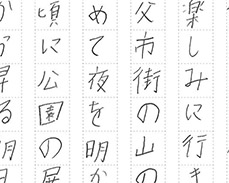 楽しみに行き
父市街の山の
めて夜を明か
頃に公園の展
昇る